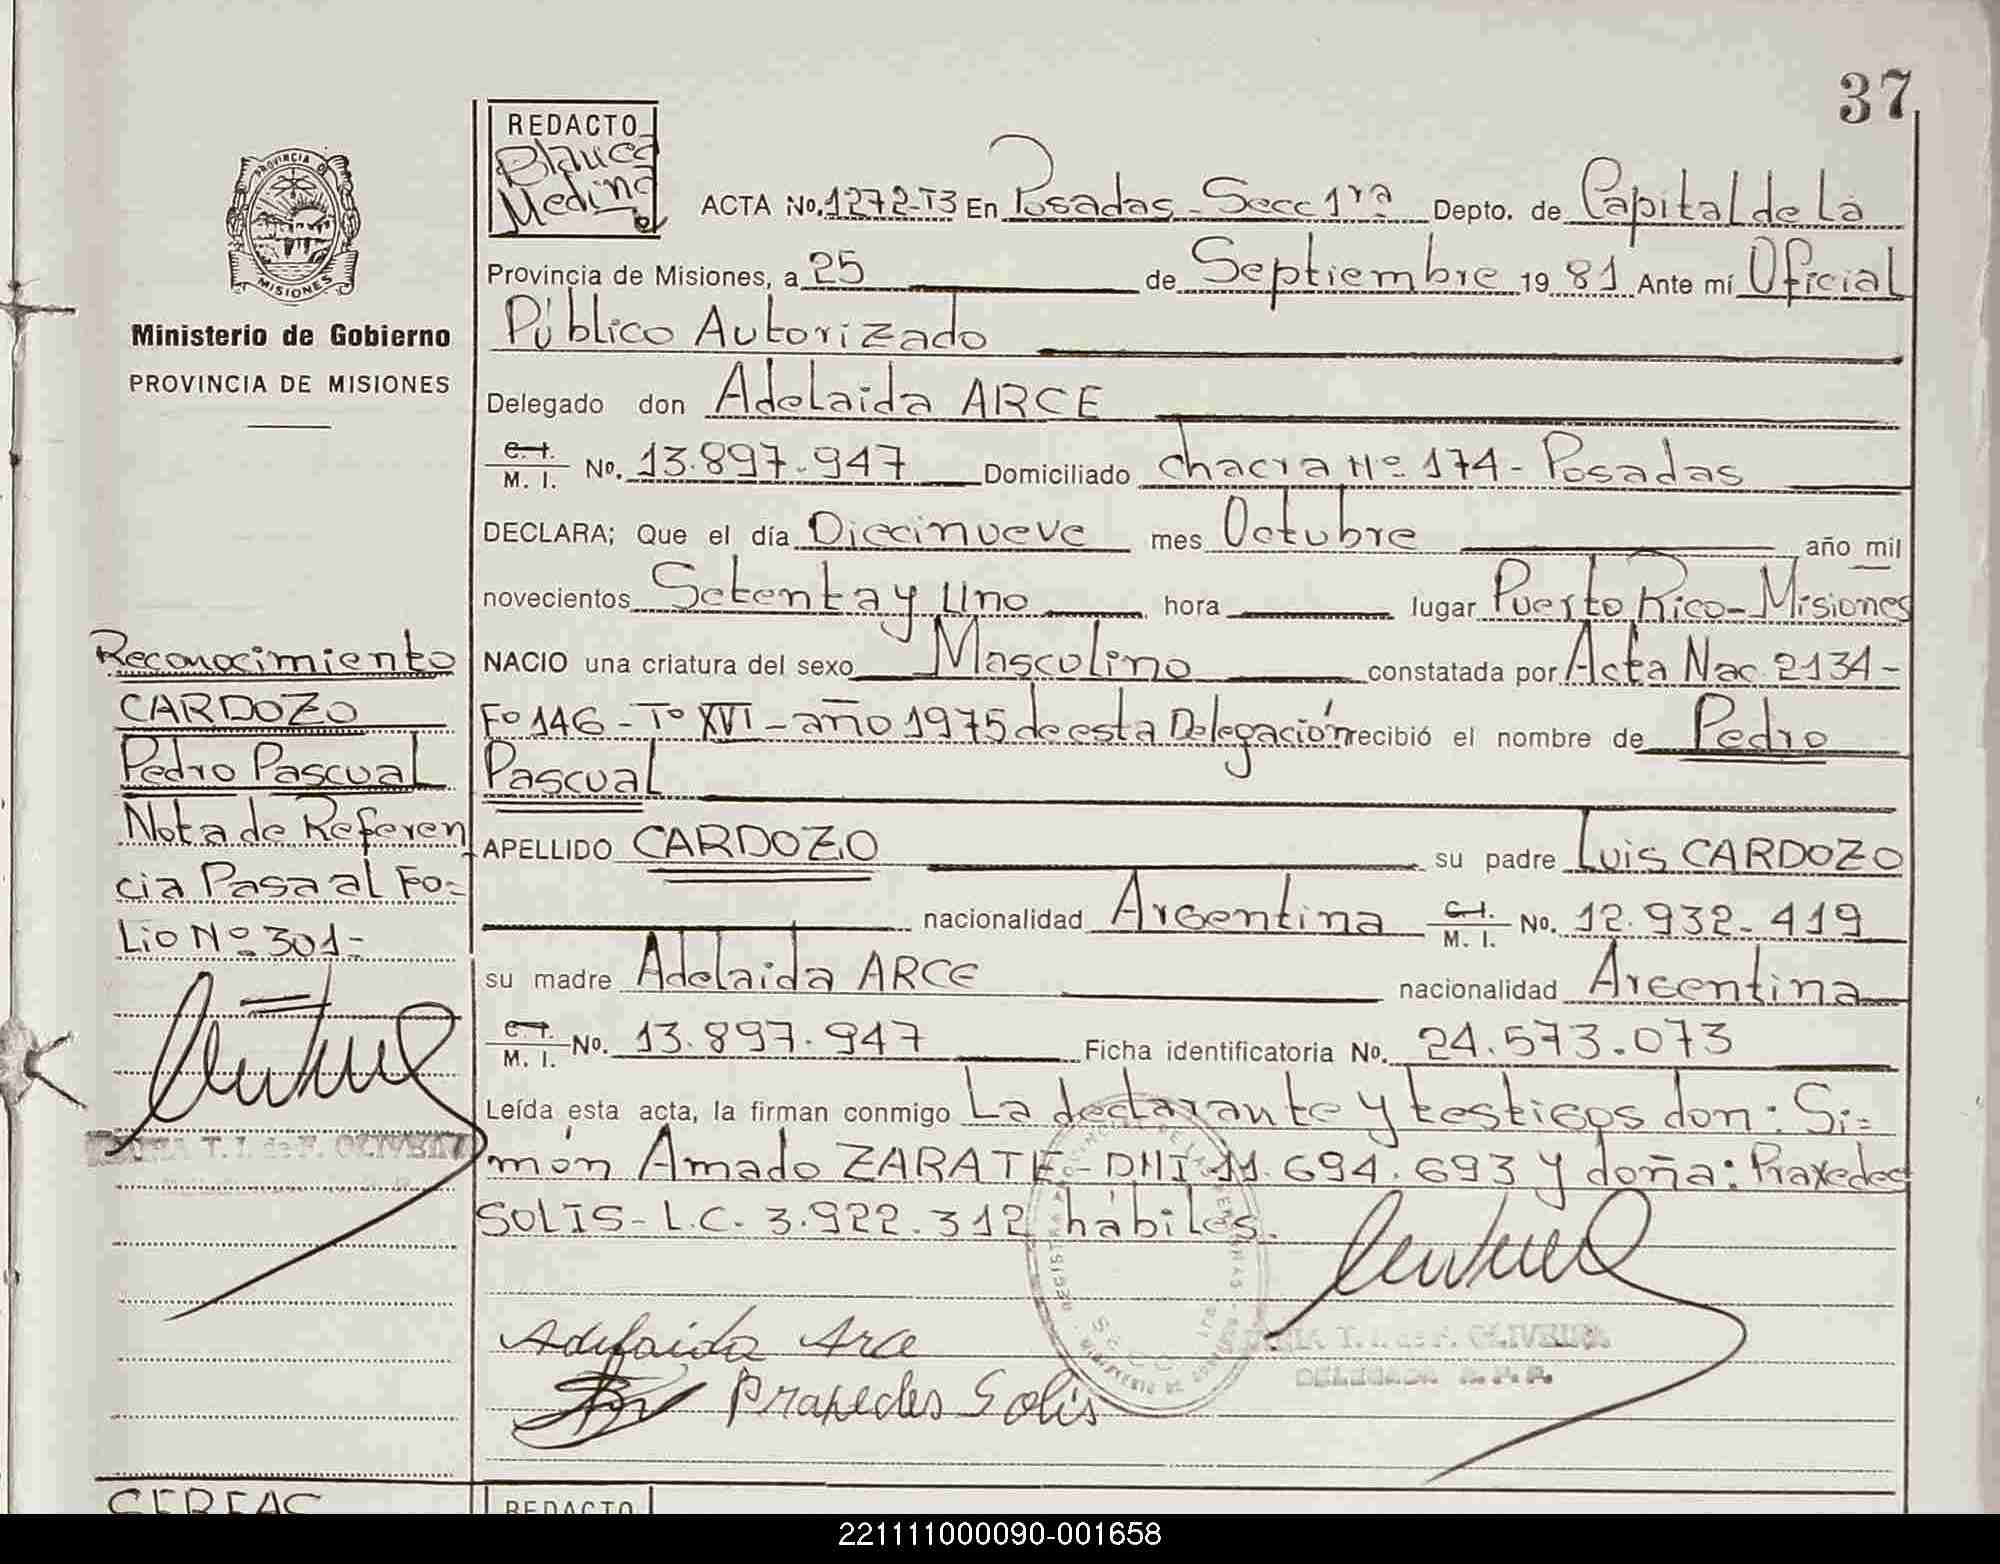 37
PROVINCIA DE
MISIONES
Ministerio de Gobierno
PROVINCIA DE MISIONES
REDACTO
Blanca
Medina
ACTA No. 1272-T3 En Posadas - Secc 1ra Depto. de Capital de La
Provincia de Misiones, a 25 de Septiembre 19 81 Ante mí Oficial
Público Autorizado
Delegado don Adelaida ARCE
C. I.
M. I. No. 13.897.947 Domiciliado chacra Nº 174 - Posadas
DECLARA; Que el día Diecinueve mes Octubre año mil
novecientos Setenta y Uno hora lugar Puerto Rico - Misiones
NACIO una criatura del sexo Masculino constatada por Acta Nac. 2134-
Fº 146 - Tº XVI - año 1975 de esta Delegación recibió el nombre de Pedro
Pascual
APELLIDO CARDOZO su padre Luis CARDOZO
nacionalidad Argentina C. I.
M. I. No. 12.932.419
su madre Adelaida ARCE nacionalidad Argentina
C. I.
M. I. No. 13.897.947 Ficha identificatoria No. 24.573.073
Leída esta acta, la firman conmigo La declarante y testigos don: Si=
món Amado ZARATE - DNI 11.694.693 y doña: Praxedes
SOLIS - L.C. 3.922.312 hábiles.
Adelaida Arce
Praxedes Solis
T. I. de F. OLIVEIRA
DELEGADA
Reconocimiento
CARDOZO
Pedro Pascual
Nota de Referen
cia Pasa al Fo=
Lio Nº 301-
T. I. de F. OLIVEIRA
REDACTO
221111000090-001658